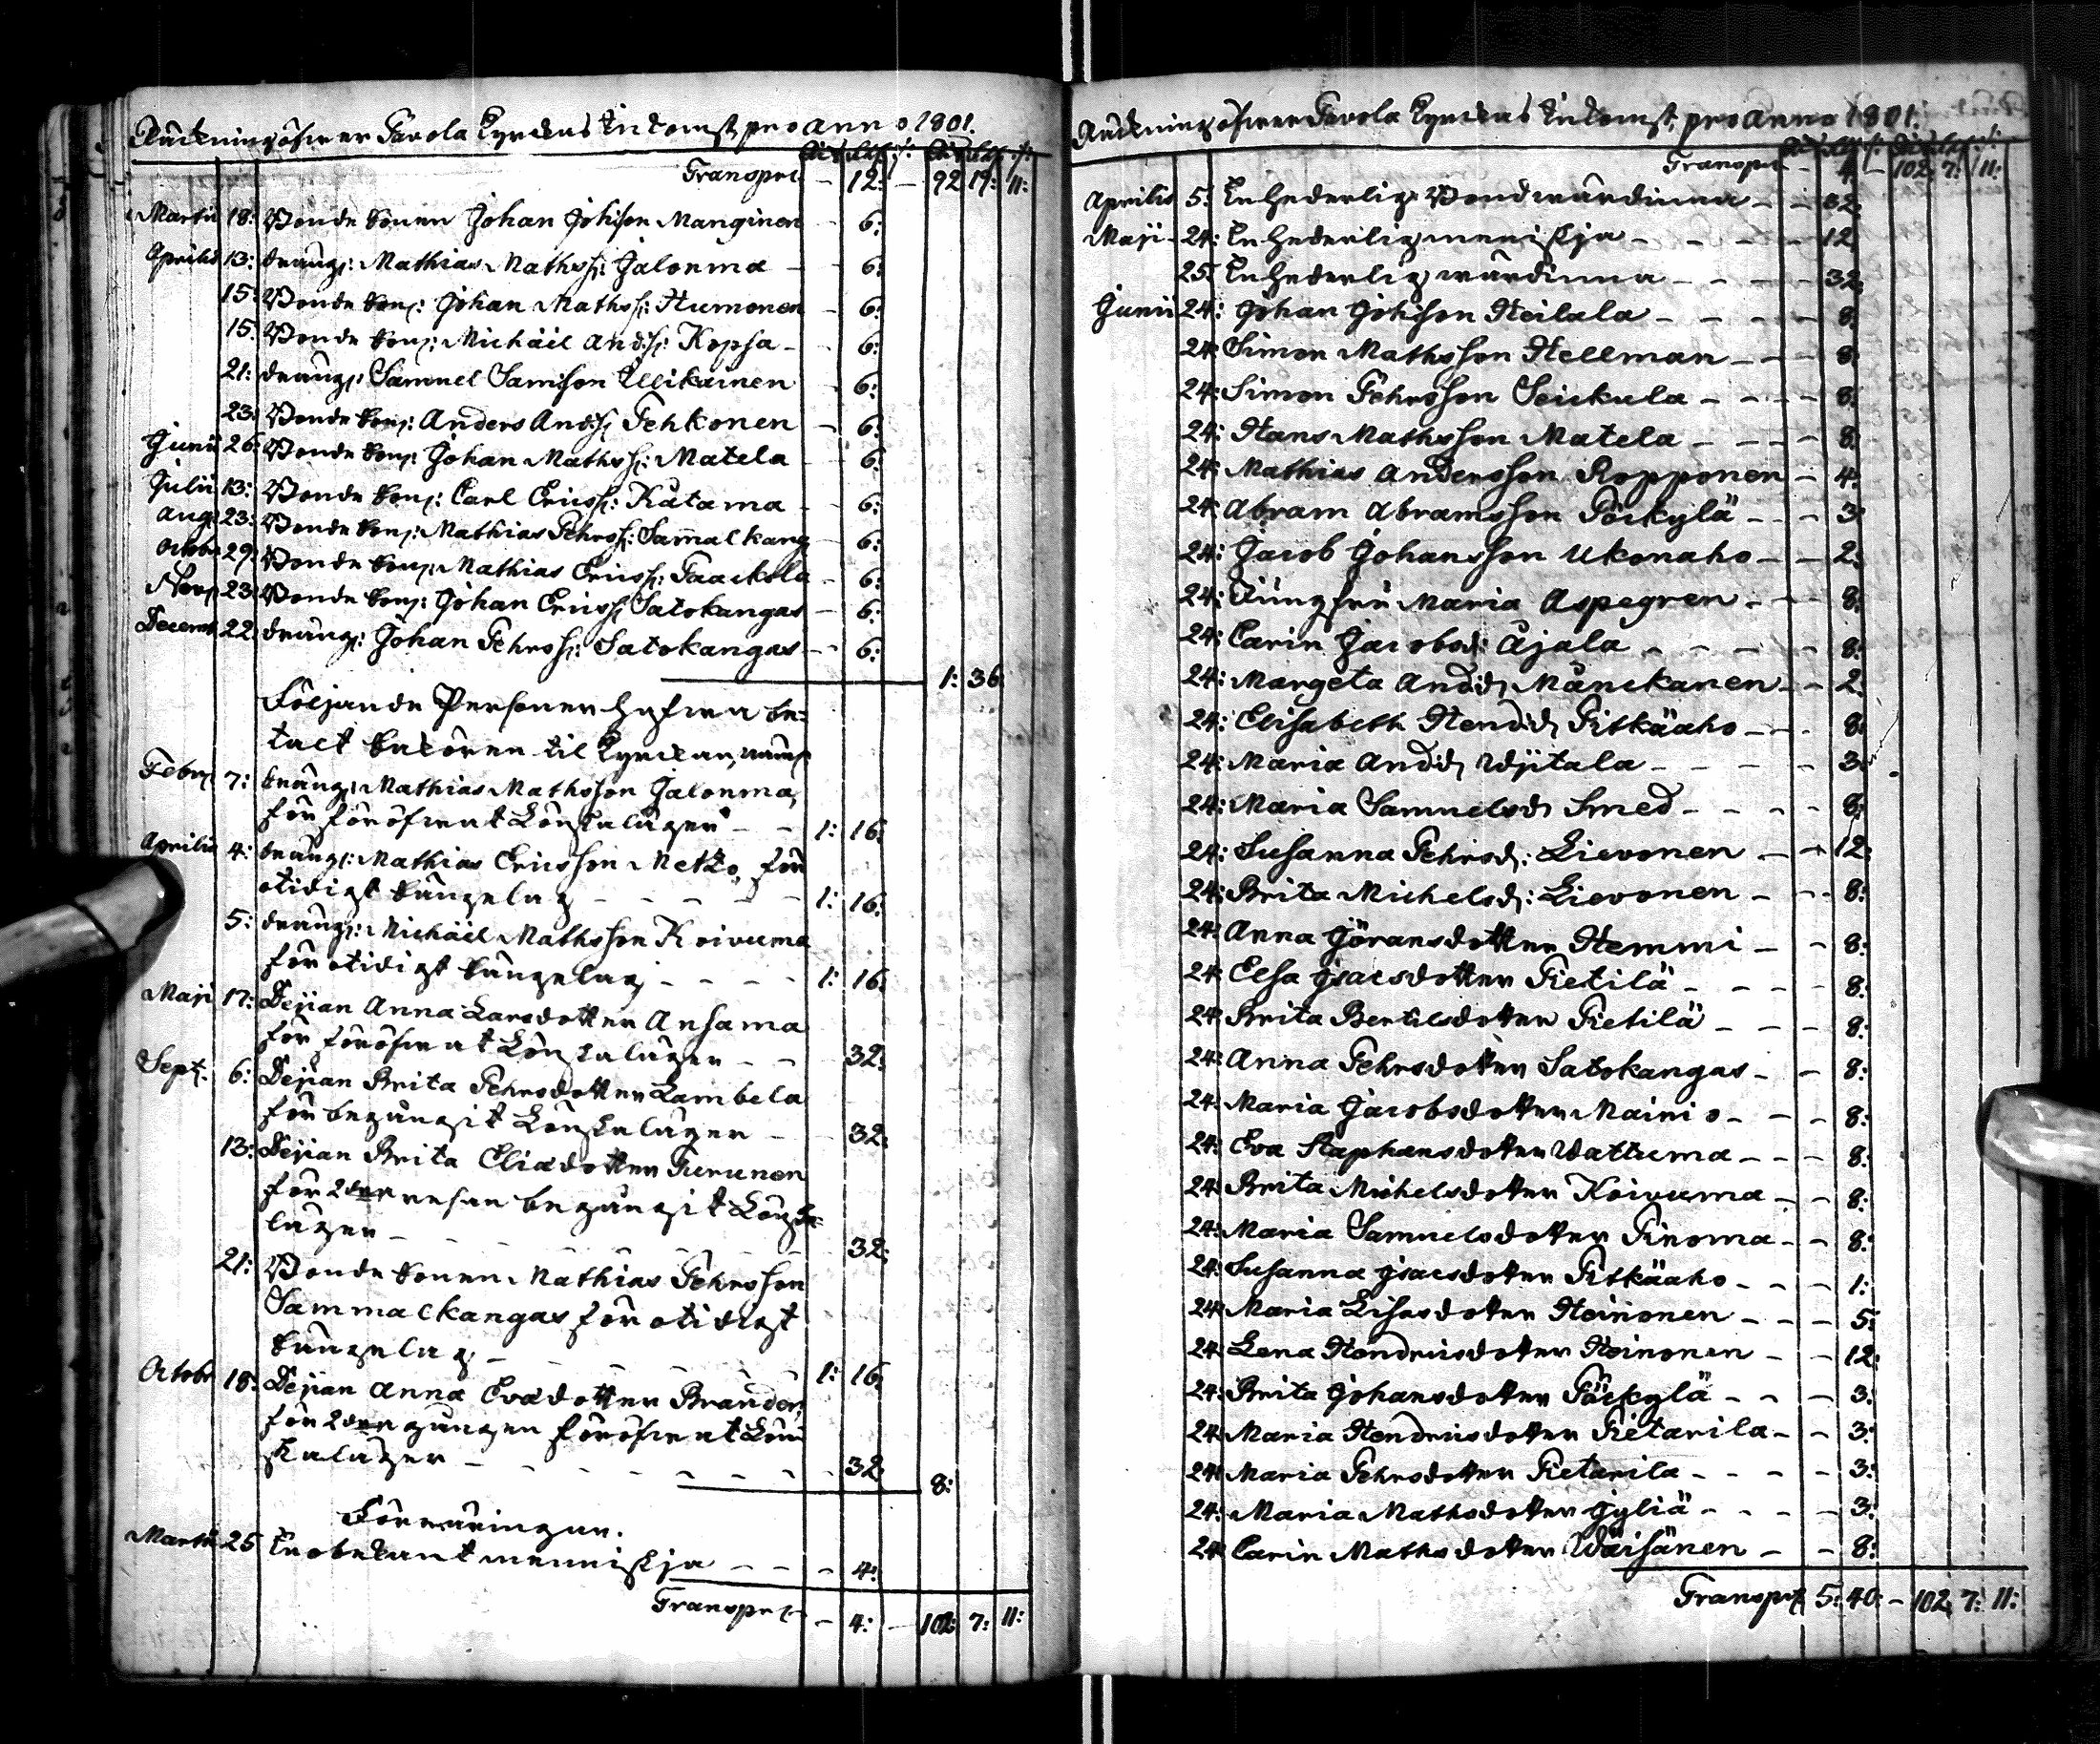 Räkning öfwer Pavola Kyrckas Inkomst, pro anno 1801.
Rdr sk rs Rdr sk rs
Transpt - 12: - 92 19: 11:
Martii 18: Bonde sonen Johan Johsson Manginen - 6:
Aprilis 13: dräng: Mathias Mathss: Jalonma - 6:
15: Bonde son: Johan Mathss: Humonen - 6:
15: Bonde son: Michäel Andss: Kopsa - 6:
21: dräng: Samuel Samsson Ullikainen - 6:
23: Bonde son: Anders Andss: Tehkonen - 6:
Junii 26: Bonde son: Johan Mathss: Matela 6:
Julii 13: Bonde son: Carl Ericss: Katama - 6:
Aug: 23: Bonde son: Mathias Pehrss: Samalkang 6:
Octobr 29: Bonde son: Mathias Ericss: Paackola - 6:
Nov: 23: Bonde son: Johan Ericss: Satokangas - 6:
Decemb 22: dräng: Johan Pehrss: Satokangas - 6:
1: 36:
Följande Personer hafwa be-
talt böter til Kyrckan, näml
Febr: 7: dräng: Mathias Mathsson Jalonma,
för föröfwat Lönskaläger - - 1: 16:
Aprilis 4: dräng: Mathias Ericsson Metzo, för
otidigt sängelag - - - - 1: 16:
5: dräng: Michäel Mathsson Koivuma
för otidigt sängelag - - - - 1: 16:
Maji 17: Pejian Anna Larsdotter Ansama
för föröfwat Lönskaläger - - 32:
Sept: 6: Pejian Brita Pehrsdotter Lambela
för begångit Lönskaläger - - 32:
13: Pejian Brita Eliædotter Turunen
för 2dra resan begångit Lönska-
läger - - - - - 32:
21: Bonde sonen Mathias Pehrsson
Sammalkangas för otidigt
sängelag - - - - 1: 16:
Octobr 18: Pejian Anna Evadotter Brander
för 2dra gången föröfwat Lön-
skaläger - - - - - 32
8:
Förräringar.
Martii 25 En obekant menniskja - - - 4:
Transpt - 4: - 102: 7: 11:
Räkning öfwer Pavola Kyrckas Inkomst, pro anno 1801.
Rdr sk rs Rdr sk rs
Transpt - 4 - 102 7: 11:
Aprilis 5: En hederlig Bondwärdinna - - 32:
Maji 24: En hederlig meniskja - - - - 12
25: En hederlig wärdinna - - - - 32:
Junii 24: Johan Johsson Heilala - - - - 8:
24: Simon Mathsson Hellman - - - 8:
24: Simon Pehrsson Seickula - - - - 8:
24: Hans Mathsson Matela - - - - 8:
24: Mathias Andersson Ropponen - 4:
24: Abram Abramsson Pöckylä - - - 3:
24: Jacob Johansson Ukonaho - - 2:
24: Jüngfrü Maria Aspegren - - - 8:
24: Carin Jacobsd: Äjala - - - - 8:
24: Margeta Andd: Mänckanen - - 2:
24: Elisabeth Hendd: Pitkäaho - - - 8:
24: Maria Andd: Ujitala - - - - 3:
24: Maria Samuelsd: Smed - - - - 8:
24: Susanna Pehrsd: Lievonen - - 12:
24: Brita Michelsd: Lievonen - - - 8:
24: Anna Jöransdotter Hemmi - - 8:
24: Elsa Isacsdotter Pietilä - - - - 8:
24: Brita Bertilsdotter Pietilä - - - 8:
24: Anna Pehrsdotter Satokangas - - 8:
24: Maria Jacobsdotter Mainio - - - 8:
24: Eva Staphansdotter Wattuma - - - 8:
24: Brita Michelsdotter Koivuma - - 8:
24: Maria Samuelsdotter Tinoma - - 8:
24: Susanna Isacsdotter Pitkäaho - - - 1:
24: Maria Lisasdotter Heinonen - - - 5:
24: Lena Hendricsdotter Heinonen - - 12:
24: Brita Johansdotter Pöckylä - - - 3:
24: Maria Hendricsdotter Pietarila - - 3:
24: Maria Pehrsdotter Pietarila - - - - 3:
24: Maria Mathsdotter Jyliä - - - - 3:
24: Carin Mathsdotter Wäisänen - - 8:
Transpt 5: 40: - 102 7: 11: